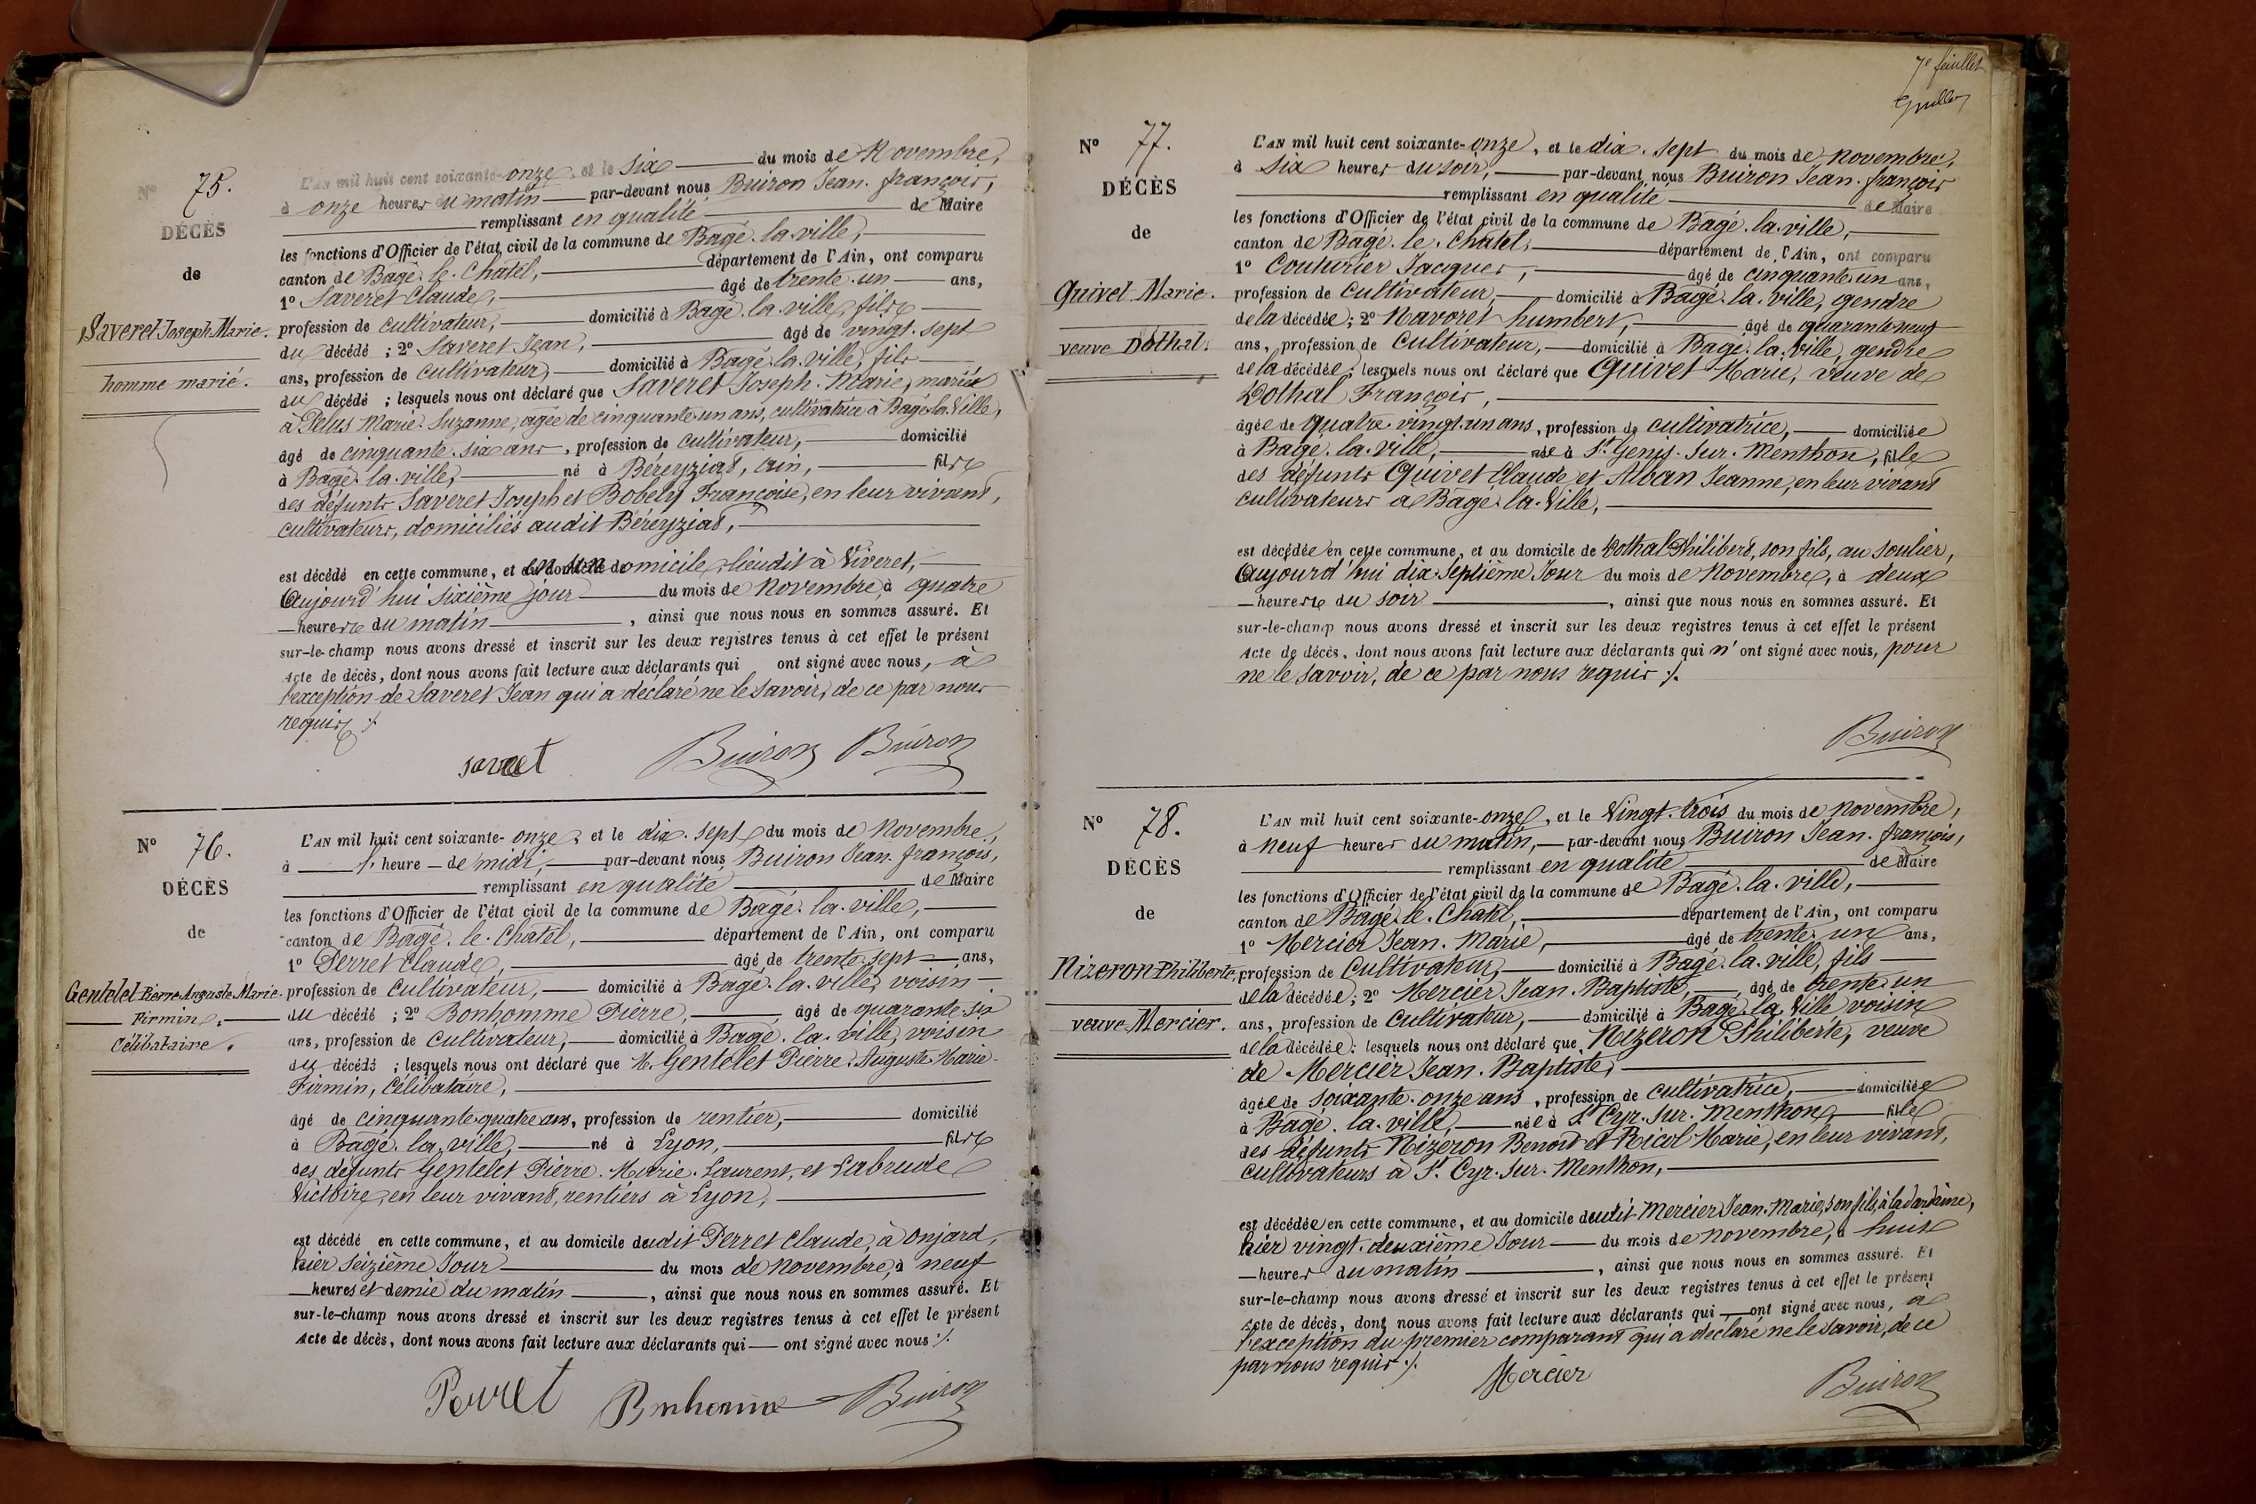 Nº 75.
DÉCÈS
de
Saveret Joseph Marie.
homme marié.
L'AN mil huit cent soixante-onze, et le six du mois de Novembre,
à onze heures du matin par-devant nous Buiron Jean-françois,
remplissant en qualité de Maire
les fonctions d'Officier de l'état civil de la commune de Bagé-la-ville,
canton de Bagé-le-Chatel, département de l'Ain, ont comparu
1º Saveret Claude, âgé de trente-un ans,
profession de cultivateur, domicilié à Bagé-la-ville, fils
du décédé ; 2º Saveret Jean, âgé de vingt-sept
ans, profession de cultivateur, domicilié à Bagé-la-ville, fils
du décédé ; lesquels nous ont déclaré que Saveret Joseph-Marie, marié
à Pelus Marie-Suzanne, agée de cinquante-un ans, cultivatrice à Bagé-la-Ville,
âgé de cinquante-six ans, profession de cultivateur, domicilié
à Bagé-la-ville, né à Béreyziat, Ain, fils
des défunts Saveret Joseph et Bobely Françoise, en leur vivant,
cultivateurs, domiciliés audit Béreyziat,
est décédé en cette commune, et en son domicile, lieudit à Viveret,
Aujourd'hui sixième jour du mois de Novembre, à quatre
heures du matin, ainsi que nous nous en sommes assuré. Et
sur-le-champ nous avons dressé et inscrit sur les deux registres tenus à cet effet le présent
Acte de décès, dont nous avons fait lecture aux déclarants qui ont signé avec nous, à
l'exception de Saveret Jean qui a déclaré ne le savoir, de ce par nous
requis ./.
savret Buiron Buiron
Nº 76.
DÉCÈS
de
Gentelet Pierre Auguste Marie
Firmin,
Célibataire.
L'AN mil huit cent soixante-onze, et le dix-sept du mois de Novembre,
à 1. heure de midi, par-devant nous Buiron Jean-françois,
remplissant en qualité de Maire
les fonctions d'Officier de l'état civil de la commune de Bagé-la-ville,
canton de Bagé-le-Chatel, département de l'Ain, ont comparu
1º Perret Claude, âgé de trente-sept ans,
profession de Cultivateur, domicilié à Bagé-la-ville, voisin
du décédé ; 2º Bonhomme Pierre, âgé de quarante-six
ans, profession de cultivateur, domicilié à Bagé-la-ville, voisin
du décédé ; lesquels nous ont déclaré que M. Gentelet Pierre-Auguste-Marie-
Firmin, Célibataire,
âgé de cinquante-quatre ans, profession de rentier, domicilié
à Bagé-la-ville, né à Lyon, fils
des défunts Gentelet Pierre-Marie-Laurent, et Labrude
Victoire, en leur vivant, rentiers à Lyon,
est décédé en cette commune, et au domicile dudit Perret Claude, à Onjard,
hier seizième Jour du mois de Novembre, à neuf
heures et demie du matin, ainsi que nous nous en sommes assuré. Et
sur-le-champ nous avons dressé et inscrit sur les deux registres tenus à cet effet le présent
Acte de décès, dont nous avons fait lecture aux déclarants qui ont signé avec nous ./.
Perret Bonhomme Buiron
7e feuillet
Nº 77.
DÉCÈS
de
Quivet Marie.
veuve Dothal.
L'AN mil huit cent soixante-onze, et le dix-sept du mois de Novembre,
à six heures du soir, par-devant nous Buiron Jean-françois
remplissant en qualité de Maire
les fonctions d'Officier de l'état civil de la commune de Bagé-la-ville,
canton de Bagé-le-Chatel, département de l'Ain, ont comparu
1º Couturier Jacques, âgé de cinquante-un ans,
profession de Cultivateur, domicilié à Bagé-la-ville, gendre
de la décédée ; 2º Navoret humbert, âgé de quarante-neuf
ans, profession de Cultivateur, domicilié à Bagé-la-ville, gendre
de la décédée ; lesquels nous ont déclaré que Quivet Marie, veuve de
Dothal François,
âgée de quatre-vingt-un ans, profession de cultivatrice, domiciliée
à Bagé-la-ville, née à St Genis-Sur-Menthon, fille
des défunts Quivet Claude et Alban Jeanne, en leur vivant
cultivateurs à Bagé-la-Ville,
est décédée en cette commune, et au domicile de Dothal Philibert, son fils, au Soulier,
Aujourd'hui dix-Septième Jour du mois de Novembre, à deux
heures du soir, ainsi que nous nous en sommes assuré. Et
sur-le-champ nous avons dressé et inscrit sur les deux registres tenus à cet effet le présent
Acte de décès, dont nous avons fait lecture aux déclarants qui n'ont signé avec nous, pour
ne le savoir, de ce par nous requis ./.
Buiron
Nº 78.
DÉCÈS
de
Nizeron Philiberte,
veuve Mercier.
L'AN mil huit cent soixante-onze, et le Vingt-trois du mois de Novembre,
à neuf heures du matin, par-devant nous Buiron Jean-françois,
remplissant en qualité de Maire
les fonctions d'Officier de l'état civil de la commune de Bagé-la-ville,
canton de Bagé-le-Chatel, département de l'Ain, ont comparu
1º Mercier Jean-Marie, âgé de trente-un ans,
profession de Cultivateur, domicilié à Bagé-la-ville, fils
de la décédée ; 2º Mercier Jean-Baptiste, âgé de trente-un
ans, profession de Cultivateur, domicilié à Bagé-la-Ville, voisin
de la décédée ; lesquels nous ont déclaré que Nizeron Philiberte, veuve
de Mercier Jean-Baptiste,
âgée de soixante-onze ans, profession de cultivatrice, domiciliée
à Bagé-la-ville, née à St Cyr-Sur-Menthon, fille
des défunts Nizeron Benoit et Ricol Marie, en leur vivant,
cultivateurs à St Cyr-Sur-Menthon,
est décédée en cette commune, et au domicile dudit Mercier Jean-Marie, son fils, à la
hier vingt-deuxième Jour du mois de Novembre, à huit
heures du matin, ainsi que nous nous en sommes assuré. Et
sur-le-champ nous avons dressé et inscrit sur les deux registres tenus à cet effet le présent
Acte de décès, dont nous avons fait lecture aux déclarants qui ont signé avec nous, à
l'exception du premier comparant qui a déclaré ne le savoir, de ce
par nous requis ./.
Mercier Buiron